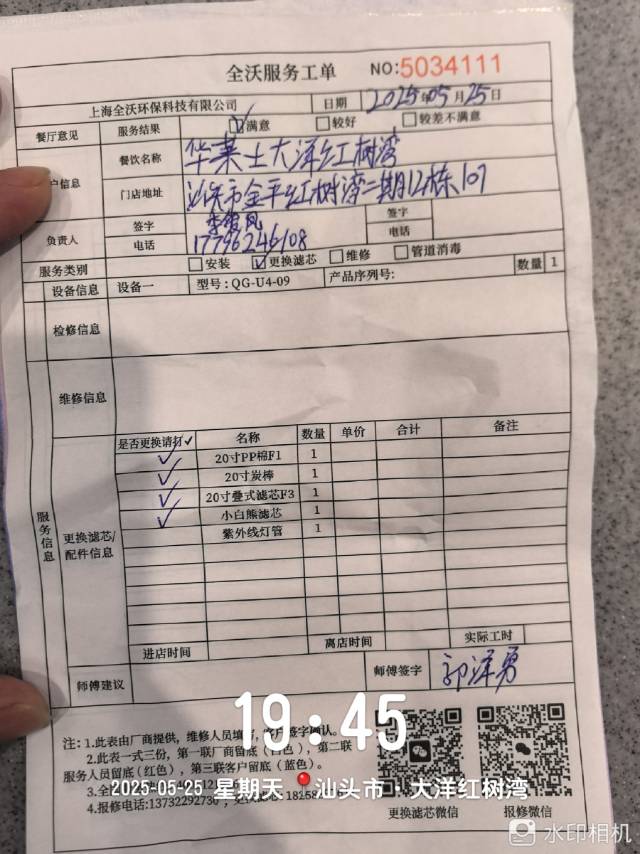 全沃服务工单 NO:5034111
上海全沃环保科技有限公司 日期 2025年05月25日
餐厅意见 服务结果 ☑满意 □较好 □较差不满意
户信息 餐饮名称 华莱士大洋红树湾
门店地址 汕头市金平红树湾二期12栋107
负责人 签字 签字
电话 17796246108 电话
服务类别 □安装 ☑更换滤芯 □维修 □管道消毒
设备信息 设备一 型号:QG-U4-09 产品序列号: 数量 1
检修信息
维修信息
服务信息
更换滤芯/配件信息
是否更换请打✓ 名称 数量 单价 合计 备注
✓ 20寸PP棉F1 1
✓ 20寸炭棒 1
✓ 20寸叠式滤芯F3 1
✓ 小白熊滤芯 1
紫外线灯管 1
进店时间 离店时间 实际工时
师傅建议 师傅签字 郭洋勇
注:1.此表由厂商提供,维修人员填写,客户签字确认。
2.此表一式三份,第一联厂商留底(白色),第二联
服务人员留底(红色),第三联客户留底(蓝色)。
4.报修电话:13732292736
更换滤芯微信 报修微信
19:45
2025-05-25 星期天 汕头市·大洋红树湾
水印相机